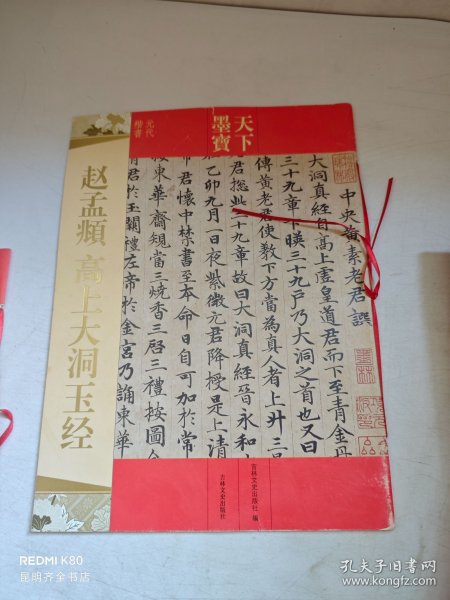 天下
墨寶
元代
楷書
赵孟頫 高上大洞玉经
中央黄素老君譔
大洞真經自高上虛皇道君而下至青金丹
三十九章下暎三十九户乃大洞之首也又曰
傳黄老君使教下方當為真人者上升三
君捴此三十九章故曰大洞真經晉永和
乙卯九月一日夜紫微元君降授是上清
君懷中禁書至本命日自可加於常
東華齋規當三燒香三啓三禮按圖
君於玉闕禮左帝於金宫乃誦東華
吉林文史出版社 编
吉林文史出版社
REDMI K80
昆明齐全书店
孔夫子旧书网
www.kongfz.com